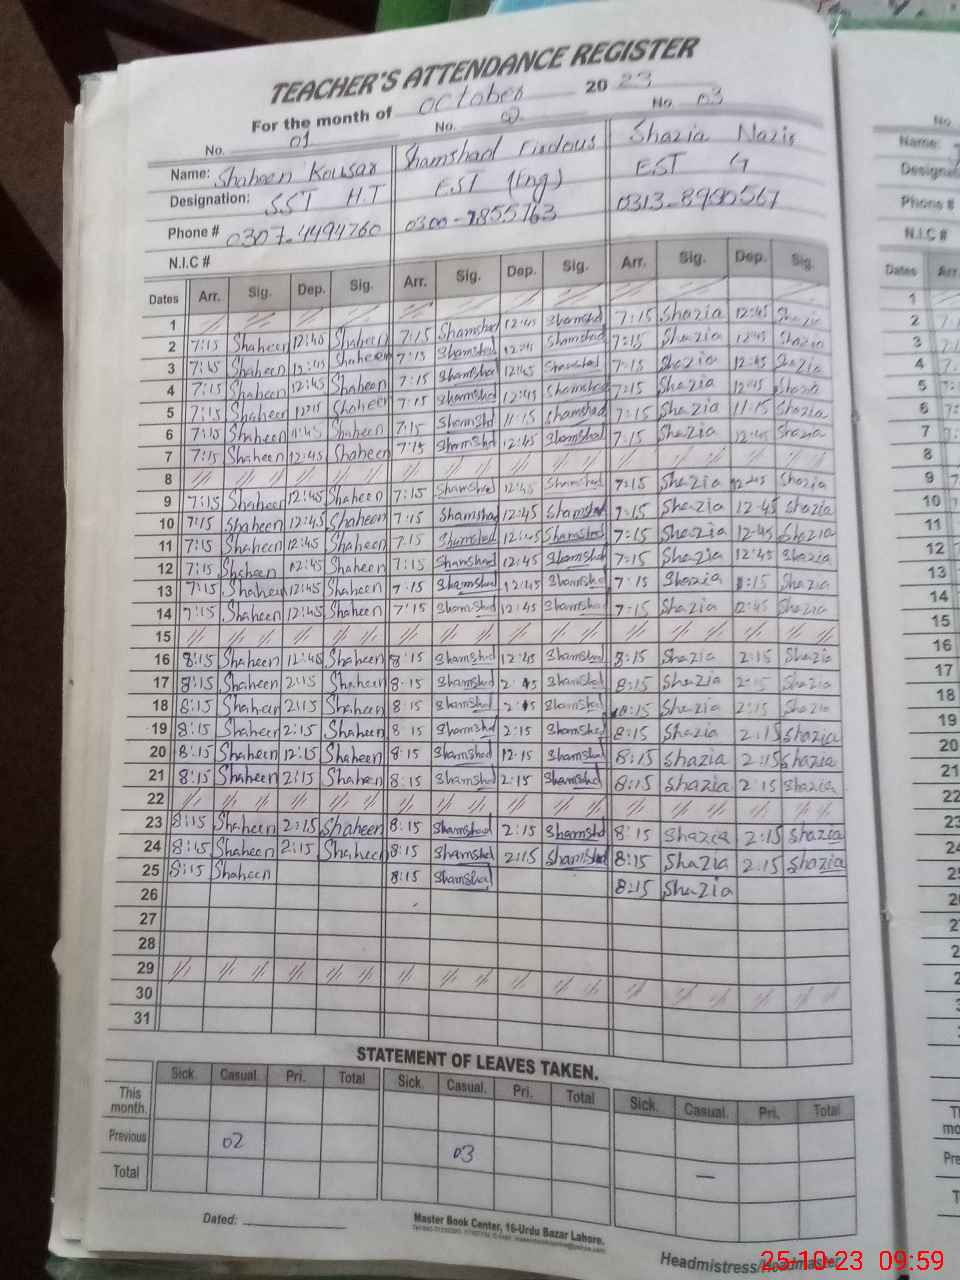 TEACHER'S ATTENDANCE REGISTER
For the month of October 2023
No. 01 No. 02 No. 03
Name: Shaheen Kousar Shamshad Firdous Shazia Nazir
Designation: SST H.T EST (Eng) EST G
Phone # 0307-4494760
N.I.C #
Dates Arr. Sig. Dep. Sig. Arr. Sig. Dep. Sig. Arr. Sig. Dep. Sig.
1
2 7:15 Shaheen 12:45 Shaheen 7:15 Shamshad 12:45 Shamshad 7:15 Shazia 12:45 Shazia
3 7:45 Shaheen 12:45 Shaheen 7:15 Shamshad 12:45 Shamshad 7:15 Shazia 12:45 Shazia
4 7:15 Shaheen 12:45 Shaheen 7:15 Shamshad 12:45 Shamshad 7:15 Shazia 12:45 Shazia
5 7:15 Shaheen Shaheen 7:15 Shamshad 12:45 Shamshad 7:15 Shazia 12:45 Shazia
6 7:15 Shaheen Shaheen 7:15 Shamshad 11:15 Shamshad 7:15 Shazia 11:15 Shazia
7 7:15 Shaheen 12:45 Shaheen 7:15 Shamshad 12:45 Shamshad 7:15 Shazia 12:45 Shazia
8
9 7:15 Shaheen 12:45 Shaheen 7:15 Shamshad 12:45 Shamshad 7:15 Shazia 12:45 Shazia
10 7:15 Shaheen 12:45 Shaheen 7:15 Shamshad 12:45 Shamshad 7:15 Shazia 12:45 Shazia
11 7:15 Shaheen 12:45 Shaheen 7:15 Shamshad 12:45 Shamshad 7:15 Shazia 12:45 Shazia
12 7:15 Shaheen 12:45 Shaheen 7:15 Shamshad 12:45 Shamshad 7:15 Shazia 12:45 Shazia
13 7:15 Shaheen 12:45 Shaheen 7:15 Shamshad 12:45 Shamshad 7:15 Shazia Shazia
14 7:15 Shaheen 12:45 Shaheen 7:15 Shamshad 12:45 Shamshad 7:15 Shazia 12:45 Shazia
15
16 8:15 Shaheen 12:45 Shaheen 8:15 Shamshad 12:45 Shamshad 8:15 Shazia 2:15 Shazia
17 8:15 Shaheen 2:15 Shaheen 8:15 Shamshad Shamshad 8:15 Shazia 2:15 Shazia
18 8:15 Shaheen 2:15 Shaheen 8:15 Shamshad Shamshad 8:15 Shazia 2:15 Shazia
19 8:15 Shaheen 2:15 Shaheen 8:15 Shamshad 2:15 Shamshad 8:15 Shazia 2:15 Shazia
20 8:15 Shaheen 12:15 Shaheen 8:15 Shamshad 12:15 Shamshad 8:15 Shazia 2:15 Shazia
21 8:15 Shaheen 2:15 Shaheen 8:15 Shamshad 2:15 Shamshad 8:15 Shazia 2:15 Shazia
22
23 8:15 Shaheen 2:15 Shaheen 8:15 Shamshad 2:15 Shamshad 8:15 Shazia 2:15 Shazia
24 8:15 Shaheen 2:15 Shaheen 8:15 Shamshad 2:15 Shamshad 8:15 Shazia 2:15 Shazia
25 8:15 Shaheen 8:15 Shamshad 8:15 Shazia
26
27
28
29
30
31
STATEMENT OF LEAVES TAKEN.
Sick. Casual. Pri. Total Sick. Casual. Pri. Total Sick. Casual. Pri. Total
This month.
Previous 02 03 —
Total
Dated:
Master Book Center, 16-Urdu Bazar Lahore.
Headmistress/Headmaster
25-10-23 09:59
No.
Name:
Designation
Phone #
N.I.C #
Dates Arr.
1
2
3
4
5
6
7
8
9
10
11
12
13
14
15
16
17
18
19
20
21
22
23